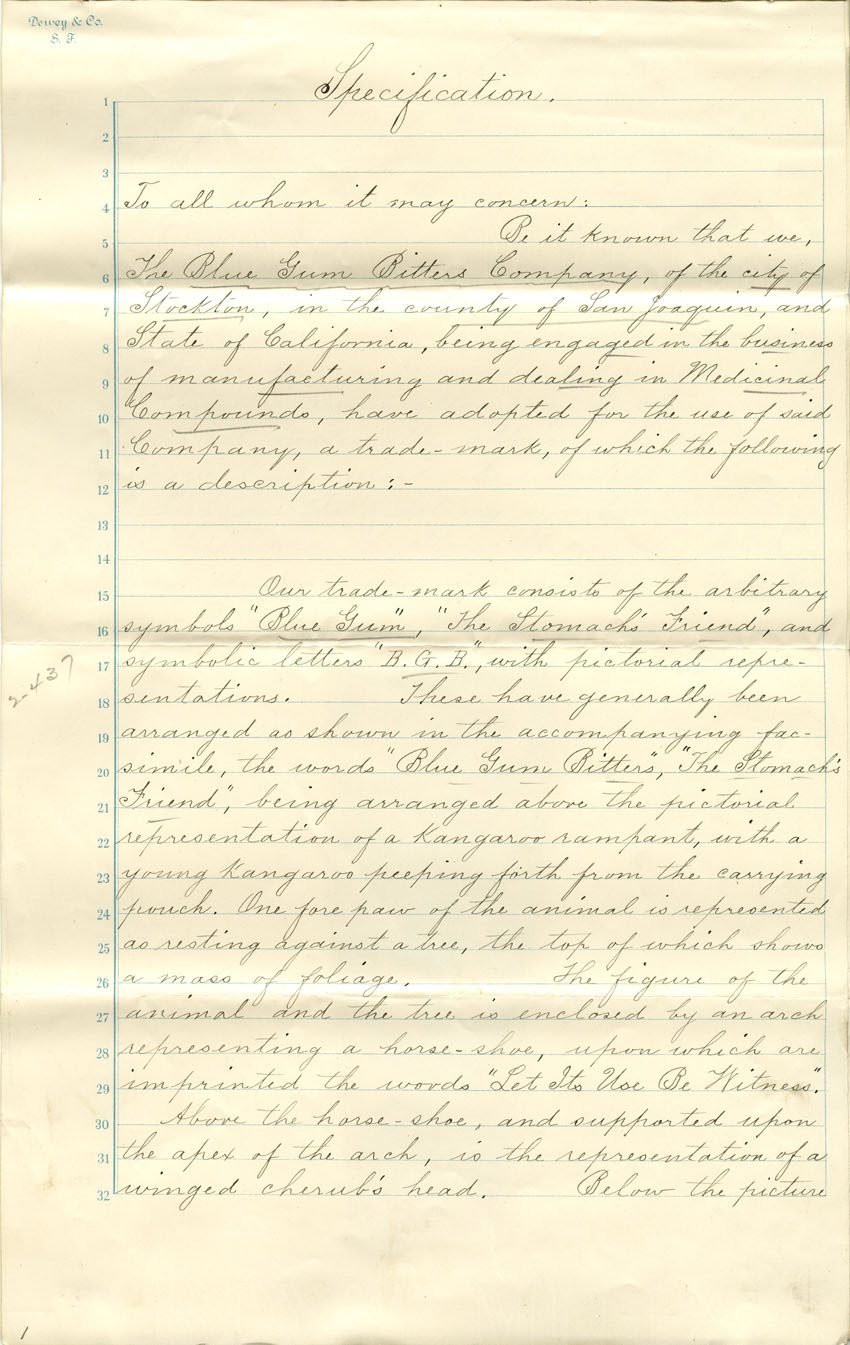 Dewey & Co.
S. F.
Specification.
1
2
3
4 To all whom it may concern:
5 Be it known that we,
6 The Blue Gum Bitters Company, of the city of
7 Stockton, in the county of San Joaquin, and
8 State of California, being engaged in the business
9 of manufacturing and dealing in Medicinal
10 Compounds, have adopted for the use of said
11 Company, a trade-mark, of which the following
12 is a description:-
13
14
15 Our trade-mark consists of the arbitrary
16 symbols "Blue Gum", "The Stomach's Friend", and
17 symbolic letters "B.G.B.", with pictorial repre-
2-437
18 sentations. These have generally been
19 arranged as shown in the accompanying fac-
20 simile, the words "Blue Gum Bitters", "The Stomach's
21 Friend", being arranged above the pictorial
22 representation of a Kangaroo rampant, with a
23 young Kangaroo peeping forth from the carrying
24 pouch. One fore paw of the animal is represented
25 as resting against a tree, the top of which shows
26 a mass of foliage. The figure of the
27 animal and the tree is enclosed by an arch
28 representing a horse-shoe, upon which are
29 imprinted the words "Let Its Use Be Witness".
30 Above the horse-shoe, and supported upon
31 the apex of the arch, is the representation of a
32 winged cherub's head. Below the picture
1